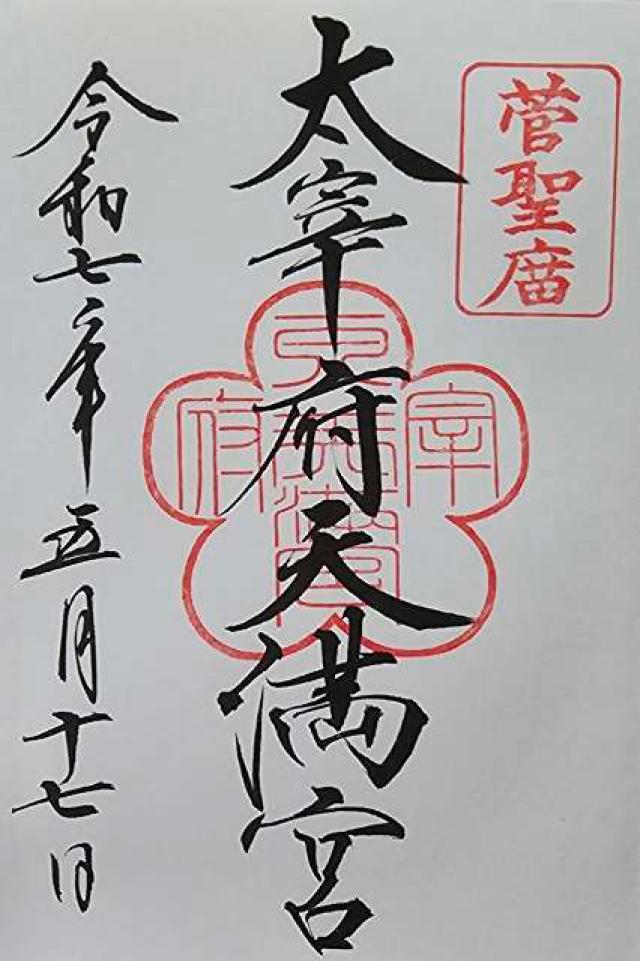 菅聖廟
太宰府天満宮
令和七年五月十七日